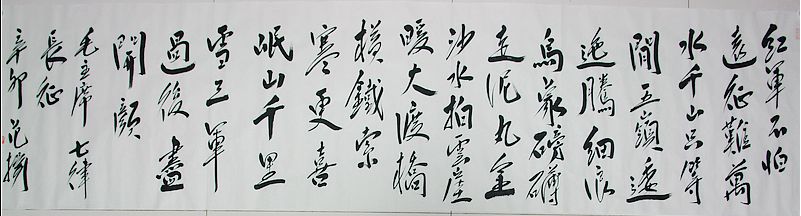 紅軍不怕
遠征難萬
水千山只等
閒五嶺逶
迤騰細浪
烏蒙磅礴
走泥丸金
沙水拍雲崖
暖大渡橋
橫鐵索
寒更喜
岷山千里
雪三軍
過後盡
開顏
毛主席 七律
長征
辛卯 范